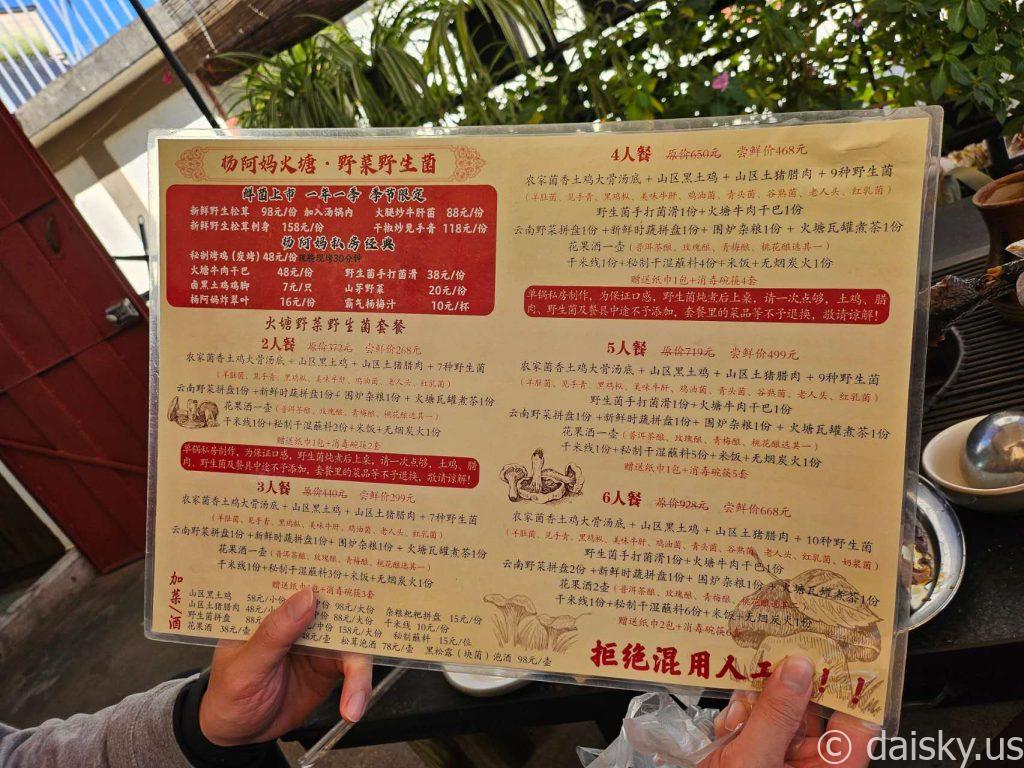 杨阿妈火塘·野菜野生菌
鲜菌上市 一年一季 季节限定
新鲜野生松茸 98元/份 加入汤锅内 火腿炒牛肝菌 88元/份
新鲜野生松茸刺身 158元/份 干椒炒见手青 118元/份
杨阿妈私房经典
秘制烤鸡(炭烤)48元/份 现点现烤30分钟
火塘牛肉干巴 48元/份 野生菌手打菌滑 38元/份
卤黑土鸡鸡脚 7元/只 山茅野菜 20元/份
杨阿妈炸翠叶 16元/份 霸气杨梅汁 10元/杯
火塘野菜野生菌套餐
2人餐 原价372元 尝鲜价268元
农家菌香土鸡大骨汤底 + 山区黑土鸡 + 山区土猪腊肉 + 7种野生菌
(羊肚菌、见手青、黑鸡枞、美味牛肝、鸡油菌、老人头、红乳菌)
云南野菜拼盘1份+新鲜时蔬拼盘1份+ 围炉杂粮1份 + 火塘瓦罐煮茶1份
花果酒一壶(普洱茶酿、玫瑰酿、青梅酿、桃花酿选其一)
干米线1份+秘制干湿蘸料2份+米饭+无烟炭火1份
赠送纸巾1包+消毒碗筷2套
单锅私房制作，为保证口感，野生菌炖煮后上桌，请一次点够，土鸡、腊
肉、野生菌及餐具中途不予添加，套餐里的菜品等不予退换，敬请谅解!
3人餐 原价440元 尝鲜价299元
农家菌香土鸡大骨汤底 + 山区黑土鸡 + 山区土猪腊肉 + 7种野生菌
(羊肚菌、见手青、黑鸡枞、美味牛肝、鸡油菌、老人头、红乳菌)
云南野菜拼盘1份+新鲜时蔬拼盘1份+ 围炉杂粮1份 + 火塘瓦罐煮茶1份
花果酒一壶(普洱茶酿、玫瑰酿、青梅酿、桃花酿选其一)
干米线1份+秘制干湿蘸料3份+米饭+无烟炭火1份
赠送纸巾1包+消毒碗筷3套
加菜/酒
山区黑土鸡 58元/小份 中份 98元/大份 杂粮粑粑拼盘 15元/份
山区土猪腊肉 48元/小 88元/大份 干米线 10元/份
野生菌拼盘 88元 中份 158元/大份 秘制蘸料 15元/位
花果酒 38元/壶 48元/壶 松茸泡酒 78元/壶 黑松露(块菌)泡酒 98元/壶
4人餐 原价650元 尝鲜价468元
农家菌香土鸡大骨汤底 + 山区黑土鸡 + 山区土猪腊肉 + 9种野生菌
(羊肚菌、见手青、黑鸡枞、美味牛肝、鸡油菌、青头菌、谷熟菌、老人头、红乳菌)
野生菌手打菌滑1份+火塘牛肉干巴1份
云南野菜拼盘1份+新鲜时蔬拼盘1份 + 围炉杂粮1份 + 火塘瓦罐煮茶1份
花果酒一壶(普洱茶酿、玫瑰酿、青梅酿、桃花酿选其一)
干米线1份+秘制干湿蘸料4份+米饭+无烟炭火1份
赠送纸巾1包+消毒碗筷4套
单锅私房制作，为保证口感，野生菌炖煮后上桌，请一次点够，土鸡、腊
肉、野生菌及餐具中途不予添加，套餐里的菜品等不予退换，敬请谅解!
5人餐 原价719元 尝鲜价499元
农家菌香土鸡大骨汤底 + 山区黑土鸡 + 山区土猪腊肉 + 9种野生菌
(羊肚菌、见手青、黑鸡枞、美味牛肝、鸡油菌、青头菌、谷熟菌、老人头、红乳菌)
野生菌手打菌滑1份+火塘牛肉干巴1份
云南野菜拼盘1份+新鲜时蔬拼盘1份 + 围炉杂粮1份 + 火塘瓦罐煮茶1份
花果酒一壶(普洱茶酿、玫瑰酿、青梅酿、桃花酿选其一)
干米线1份+秘制干湿蘸料5份+米饭+无烟炭火1份
赠送纸巾1包+消毒碗筷5套
6人餐 原价928元 尝鲜价668元
农家菌香土鸡大骨汤底 + 山区黑土鸡 + 山区土猪腊肉 + 10种野生菌
(羊肚菌、见手青、黑鸡枞、美味牛肝、鸡油菌、青头菌、谷熟菌、老人头、红乳菌、奶浆菌)
野生菌手打菌滑1份+火塘牛肉干巴1份
云南野菜拼盘2份+新鲜时蔬拼盘1份 + 围炉杂粮1份 + 火塘瓦罐煮茶1份
花果酒2壶(普洱茶酿、玫瑰酿、青梅酿、桃花酿选其一)
干米线1份+秘制干湿蘸料6份+米饭+无烟炭火1份
赠送纸巾2包+消毒碗筷6套
拒绝混用人工!!
© daisky.us